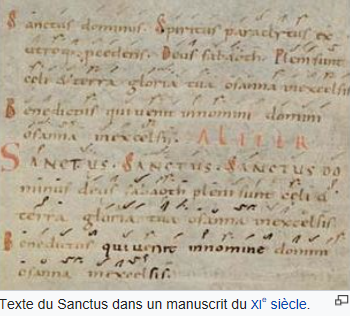 Sanctus dominus. Spiritus paraclytus ex
utroq; pcedens. Deus sabaoth. Pleni sunt
celi & terra gloria tua osanna inexcelsis
Benedictus qui venit innomini domini
osanna inexcelsis. ALITER
SANCTUS. SANCTUS. SANCTUS DO
minus deus sabaoth pleni sunt celi &
terra gloria tua osanna inexcelsis
Benedictus qui venit innomine domini
osanna inexcelsis.
Texte du Sanctus dans un manuscrit du XIe siècle.